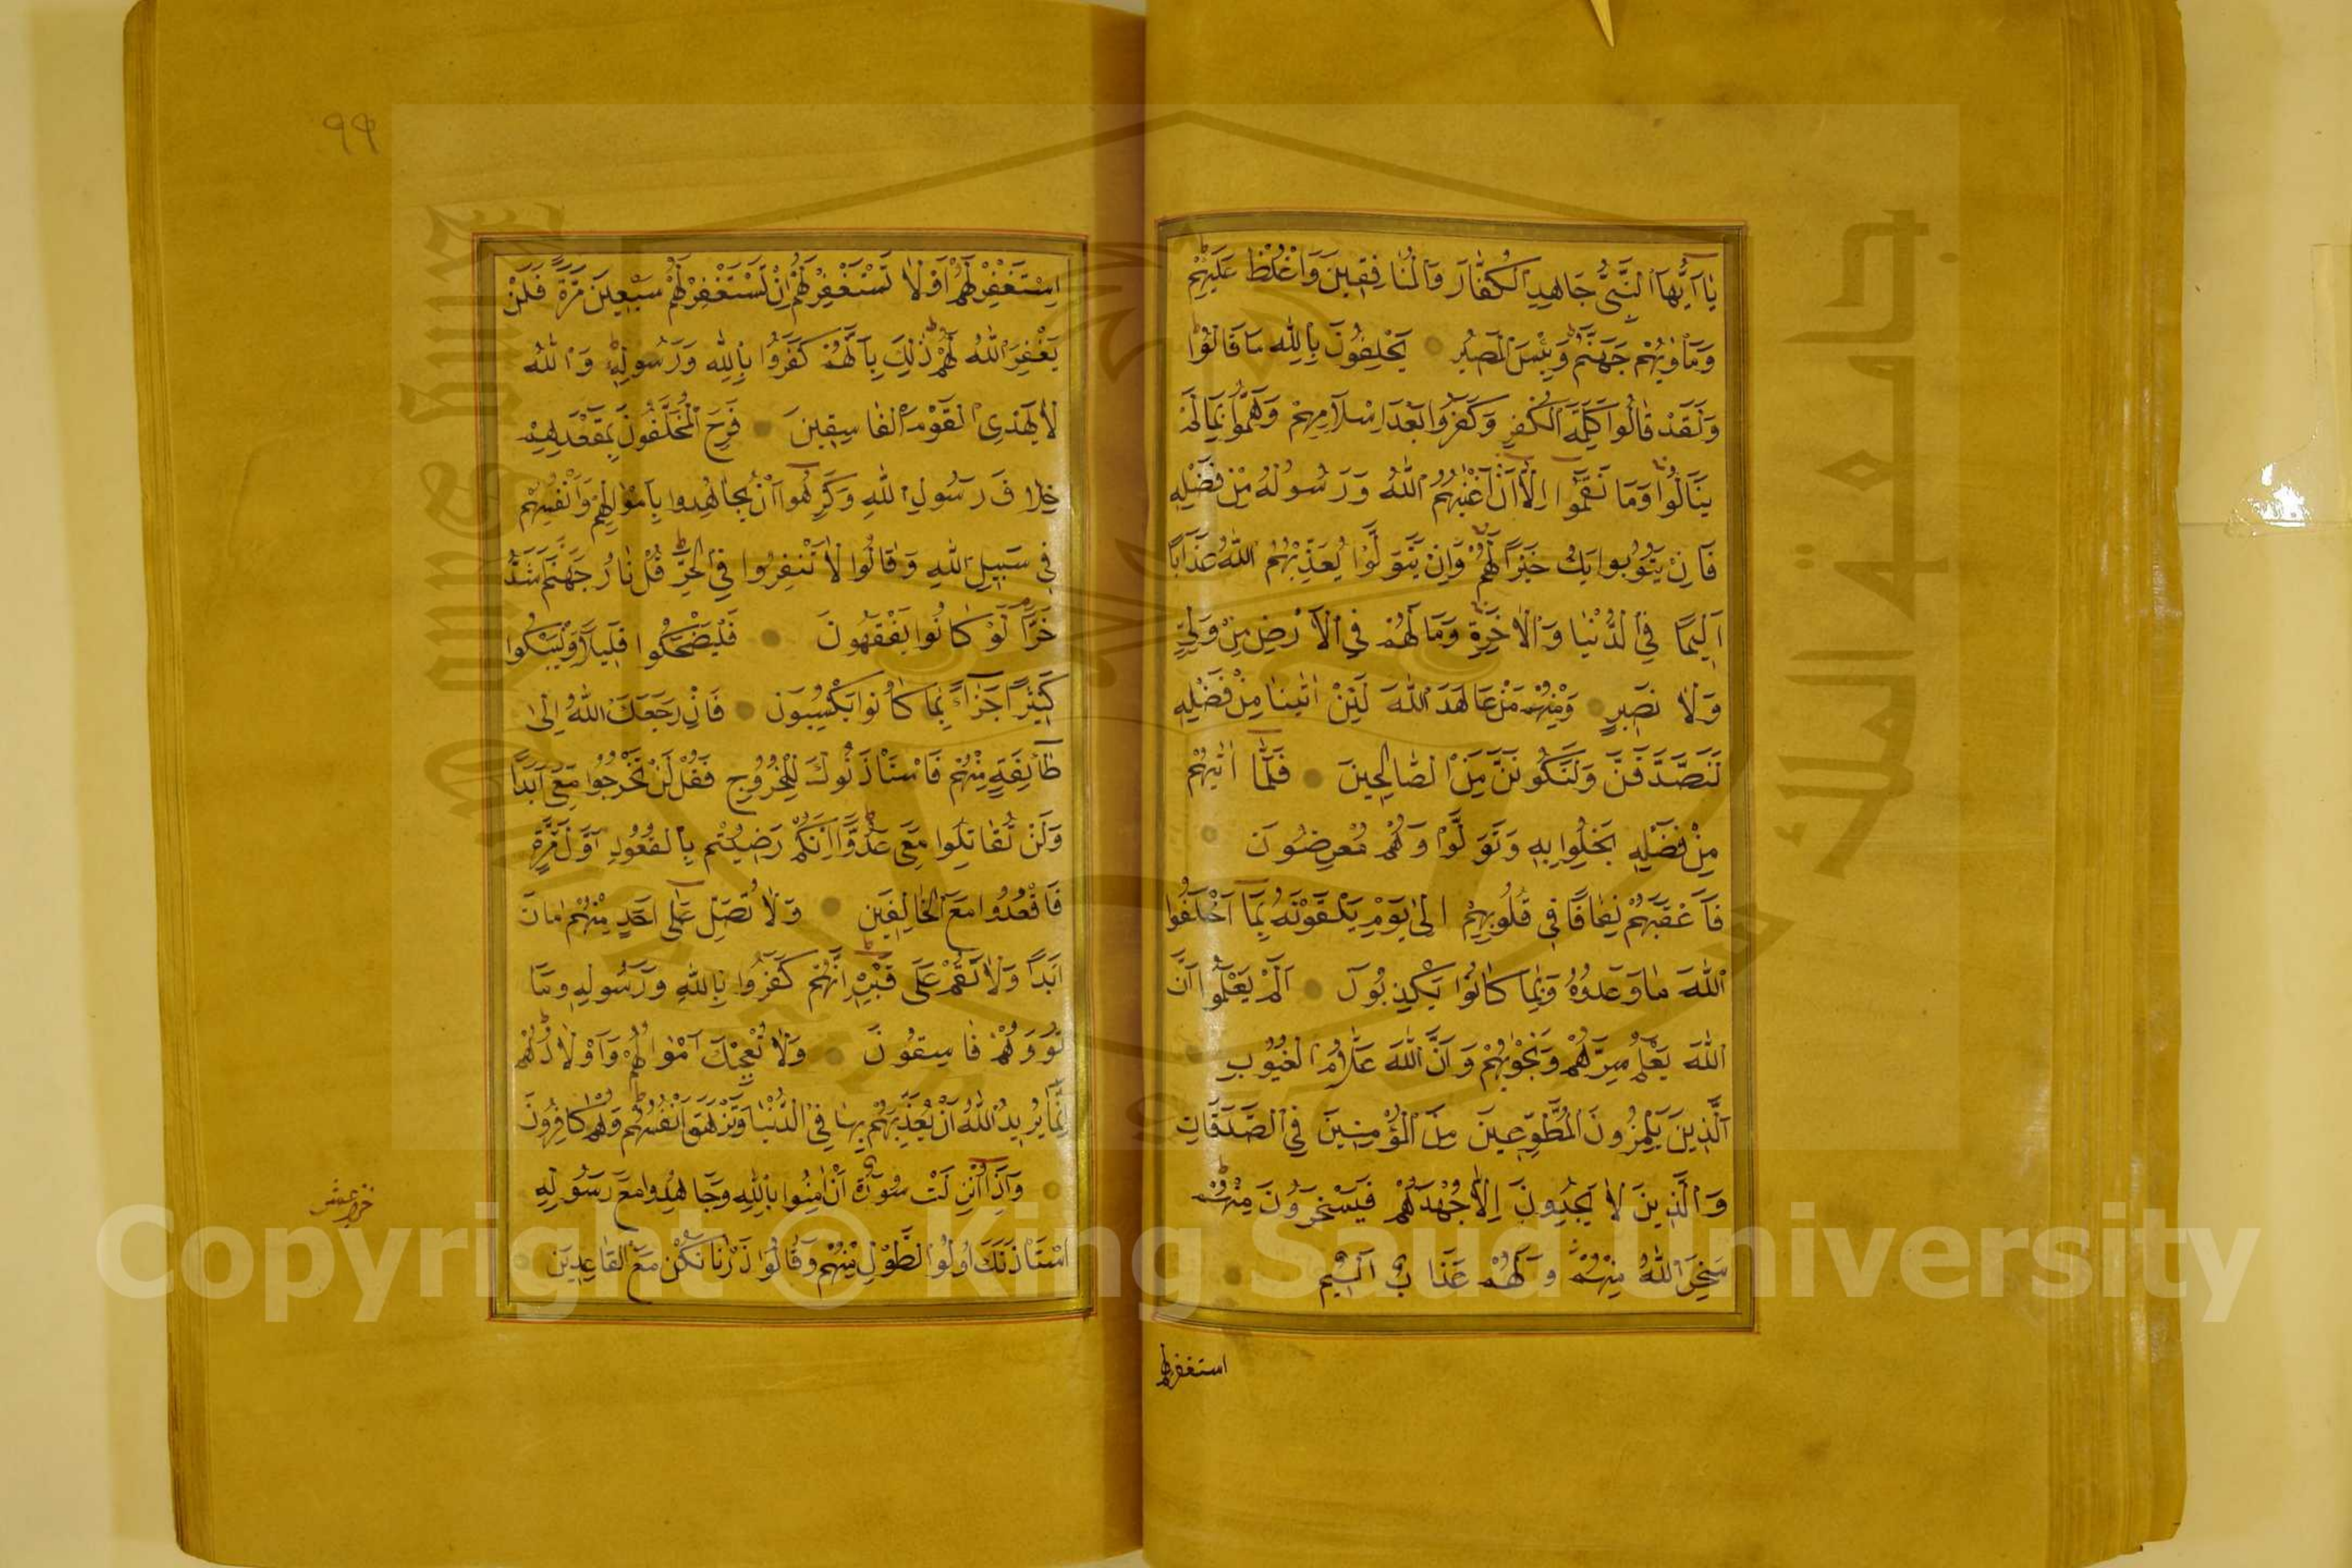 يَا اَيُّهَا النَّبِيُّ جَاهِدِ الْكُفَّارَ وَالْمُنَافِقِينَ وَاغْلُظْ عَلَيْهِمْ
وَمَأْوٰيهُمْ جَهَنَّمُ وَبِئْسَ الْمَصِيرُ يَحْلِفُونَ بِاللّٰهِ مَا قَالُوا
وَلَقَدْ قَالُوا كَلِمَةَ الْكُفْرِ وَكَفَرُوا بَعْدَ اِسْلَامِهِمْ وَهَمُّوا بِمَا لَمْ
يَنَالُوا وَمَا نَقَمُوا اِلَّا اَنْ اَغْنٰيهُمُ اللّٰهُ وَرَسُولُهُ مِنْ فَضْلِهِ
فَاِنْ يَتُوبُوا يَكُ خَيْرًا لَهُمْ وَاِنْ يَتَوَلَّوْا يُعَذِّبْهُمُ اللّٰهُ عَذَابًا
اَلِيمًا فِي الدُّنْيَا وَالْاٰخِرَةِ وَمَا لَهُمْ فِي الْاَرْضِ مِنْ وَلِيٍّ
وَلَا نَصِيرٍ وَمِنْهُمْ مَنْ عَاهَدَ اللّٰهَ لَئِنْ اٰتٰينَا مِنْ فَضْلِهِ
لَنَصَّدَّقَنَّ وَلَنَكُونَنَّ مِنَ الصَّالِحِينَ فَلَمَّا اٰتٰيهُمْ
مِنْ فَضْلِهِ بَخِلُوا بِهِ وَتَوَلَّوْا وَهُمْ مُعْرِضُونَ
فَاَعْقَبَهُمْ نِفَاقًا فِي قُلُوبِهِمْ اِلٰى يَوْمِ يَلْقَوْنَهُ بِمَا اَخْلَفُوا
اللّٰهَ مَا وَعَدُوهُ وَبِمَا كَانُوا يَكْذِبُونَ اَلَمْ يَعْلَمُوا اَنَّ
اللّٰهَ يَعْلَمُ سِرَّهُمْ وَنَجْوٰيهُمْ وَاَنَّ اللّٰهَ عَلَّامُ الْغُيُوبِ
اَلَّذِينَ يَلْمِزُونَ الْمُطَّوِّعِينَ مِنَ الْمُؤْمِنِينَ فِي الصَّدَقَاتِ
وَالَّذِينَ لَا يَجِدُونَ اِلَّا جُهْدَهُمْ فَيَسْخَرُونَ مِنْهُمْ
سَخِرَ اللّٰهُ مِنْهُمْ وَلَهُمْ عَذَابٌ اَلِيمٌ
استغفر لهم
٩٩
اِسْتَغْفِرْ لَهُمْ اَوْ لَا تَسْتَغْفِرْ لَهُمْ اِنْ تَسْتَغْفِرْ لَهُمْ سَبْعِينَ مَرَّةً فَلَنْ
يَغْفِرَ اللّٰهُ لَهُمْ ذٰلِكَ بِاَنَّهُمْ كَفَرُوا بِاللّٰهِ وَرَسُولِهِ وَاللّٰهُ
لَا يَهْدِي الْقَوْمَ الْفَاسِقِينَ فَرِحَ الْمُخَلَّفُونَ بِمَقْعَدِهِمْ
خِلَافَ رَسُولِ اللّٰهِ وَكَرِهُوا اَنْ يُجَاهِدُوا بِاَمْوَالِهِمْ وَاَنْفُسِهِمْ
فِي سَبِيلِ اللّٰهِ وَقَالُوا لَا تَنْفِرُوا فِي الْحَرِّ قُلْ نَارُ جَهَنَّمَ اَشَدُّ
حَرًّا لَوْ كَانُوا يَفْقَهُونَ فَلْيَضْحَكُوا قَلِيلًا وَلْيَبْكُوا
كَثِيرًا جَزَاءً بِمَا كَانُوا يَكْسِبُونَ فَاِنْ رَجَعَكَ اللّٰهُ اِلٰى
طَائِفَةٍ مِنْهُمْ فَاسْتَأْذَنُوكَ لِلْخُرُوجِ فَقُلْ لَنْ تَخْرُجُوا مَعِيَ اَبَدًا
وَلَنْ تُقَاتِلُوا مَعِيَ عَدُوًّا اِنَّكُمْ رَضِيتُمْ بِالْقُعُودِ اَوَّلَ مَرَّةٍ
فَاقْعُدُوا مَعَ الْخَالِفِينَ وَلَا تُصَلِّ عَلٰى اَحَدٍ مِنْهُمْ مَاتَ
اَبَدًا وَلَا تَقُمْ عَلٰى قَبْرِهِ اِنَّهُمْ كَفَرُوا بِاللّٰهِ وَرَسُولِهِ وَمَا
تُوا وَهُمْ فَاسِقُونَ وَلَا تُعْجِبْكَ اَمْوَالُهُمْ وَاَوْلَادُهُمْ
اِنَّمَا يُرِيدُ اللّٰهُ اَنْ يُعَذِّبَهُمْ بِهَا فِي الدُّنْيَا وَتَزْهَقَ اَنْفُسُهُمْ وَهُمْ كَافِرُونَ
وَاِذَا اُنْزِلَتْ سُورَةٌ اَنْ اٰمِنُوا بِاللّٰهِ وَجَاهِدُوا مَعَ رَسُولِهِ
اسْتَأْذَنَكَ اُولُوا الطَّوْلِ مِنْهُمْ وَقَالُوا ذَرْنَا نَكُنْ مَعَ الْقَاعِدِينَ
جامعة الملك سعود
King Saud University
Copyright © King Saud University